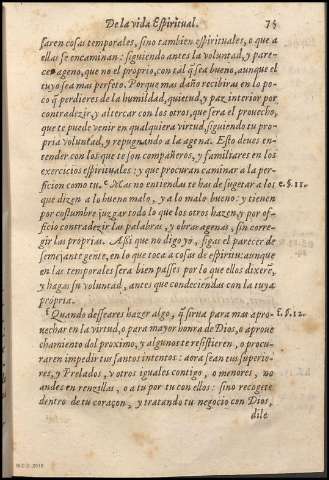 De la vida Espiritual. 75
faren cosas temporales, sino tambien espirituales, o que a
ellas se encaminan: siguiendo antes la voluntad, y pare-
cer ageno, que no el proprio, con tal q̃ sea bueno, aunque el
tuyo sea mas perfeto. Porque mas daño recibiras en lo po-
co q̃ perdieres de la humildad, quietud, y paz interior por
contradezir, y altercar con los otros, que sera el prouecho,
que te puede venir en qualquiera virtud, siguiendo tu pro-
pria voluntad, y repugnando a la agena. Esto deues en-
tender con los que te son compañeros, y familiares en los
exercicios espirituales: y que procuran caminar a la per-
ficion como tu. ᵉ Mas no entiendas te has de sugetar a los e. §. 11.
que dizen a lo bueno malo, y a lo malo bueno: y tienen
por costumbre juzgar todo lo que los otros hazen, y por of-
ficio contradezir las palabras, y obras agenas, sin corre-
gir las proprias. Assi que no digo yo, sigas el parecer de
semejante gente, en lo que toca a cosas de espiritu: aunque
en las temporales sera bien passes por lo que ellos dixerẽ,
y hagas su voluntad, antes que condeciendas con la tuya
propria.
ᶠ Quando desseares hazer algo, q̃ sirua para mas apro- f. §. 12.
uechar en la virtud, o para mayor honra de Dios, o aproue
chamiento del proximo, y algunos te resistieren, o procu-
raren impedir tus santos intentos: aora sean tus superio-
res, y Prelados, y otros iguales contigo, o menores, no
andes en renzillas, o a tu por tu con ellos: sino recogete
dentro de tu coraçon, y tratando tu negocio con Dios,
dile